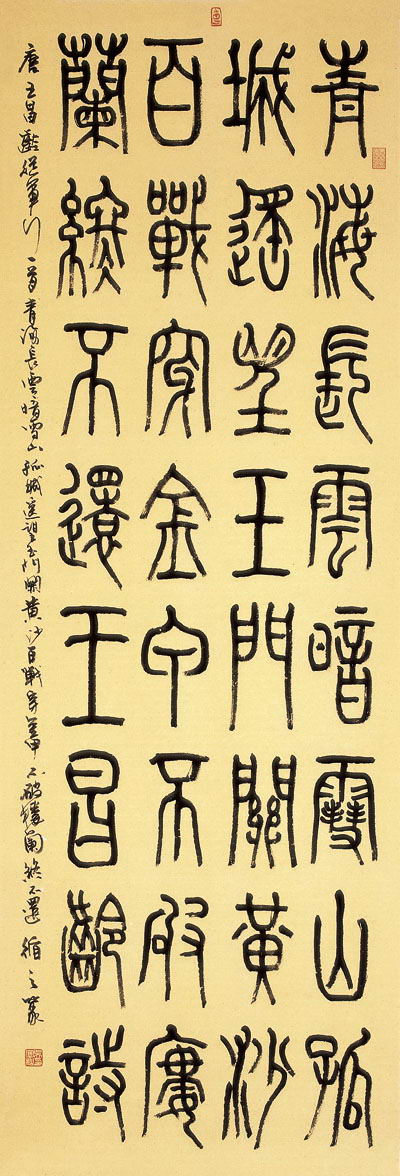 青海長雲暗雪山孤
城遙望玉門關黃沙
百戰穿金甲不破樓
蘭終不還王昌齡詩
唐王昌齡從軍行一首青海長雲暗雪山孤城遙望玉門關黃沙百戰穿金甲不破樓蘭終不還循之篆